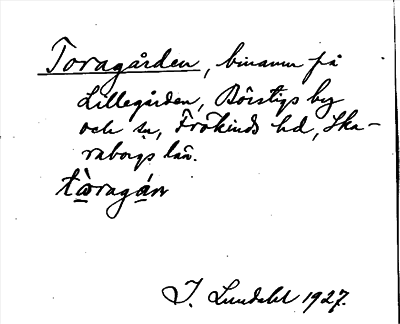 Toragården, binamn på
Lillegården, Börstigs by
och sn, Frökinds hd, Ska-
raborgs län.
tòragán
J. Lundahl 1927.